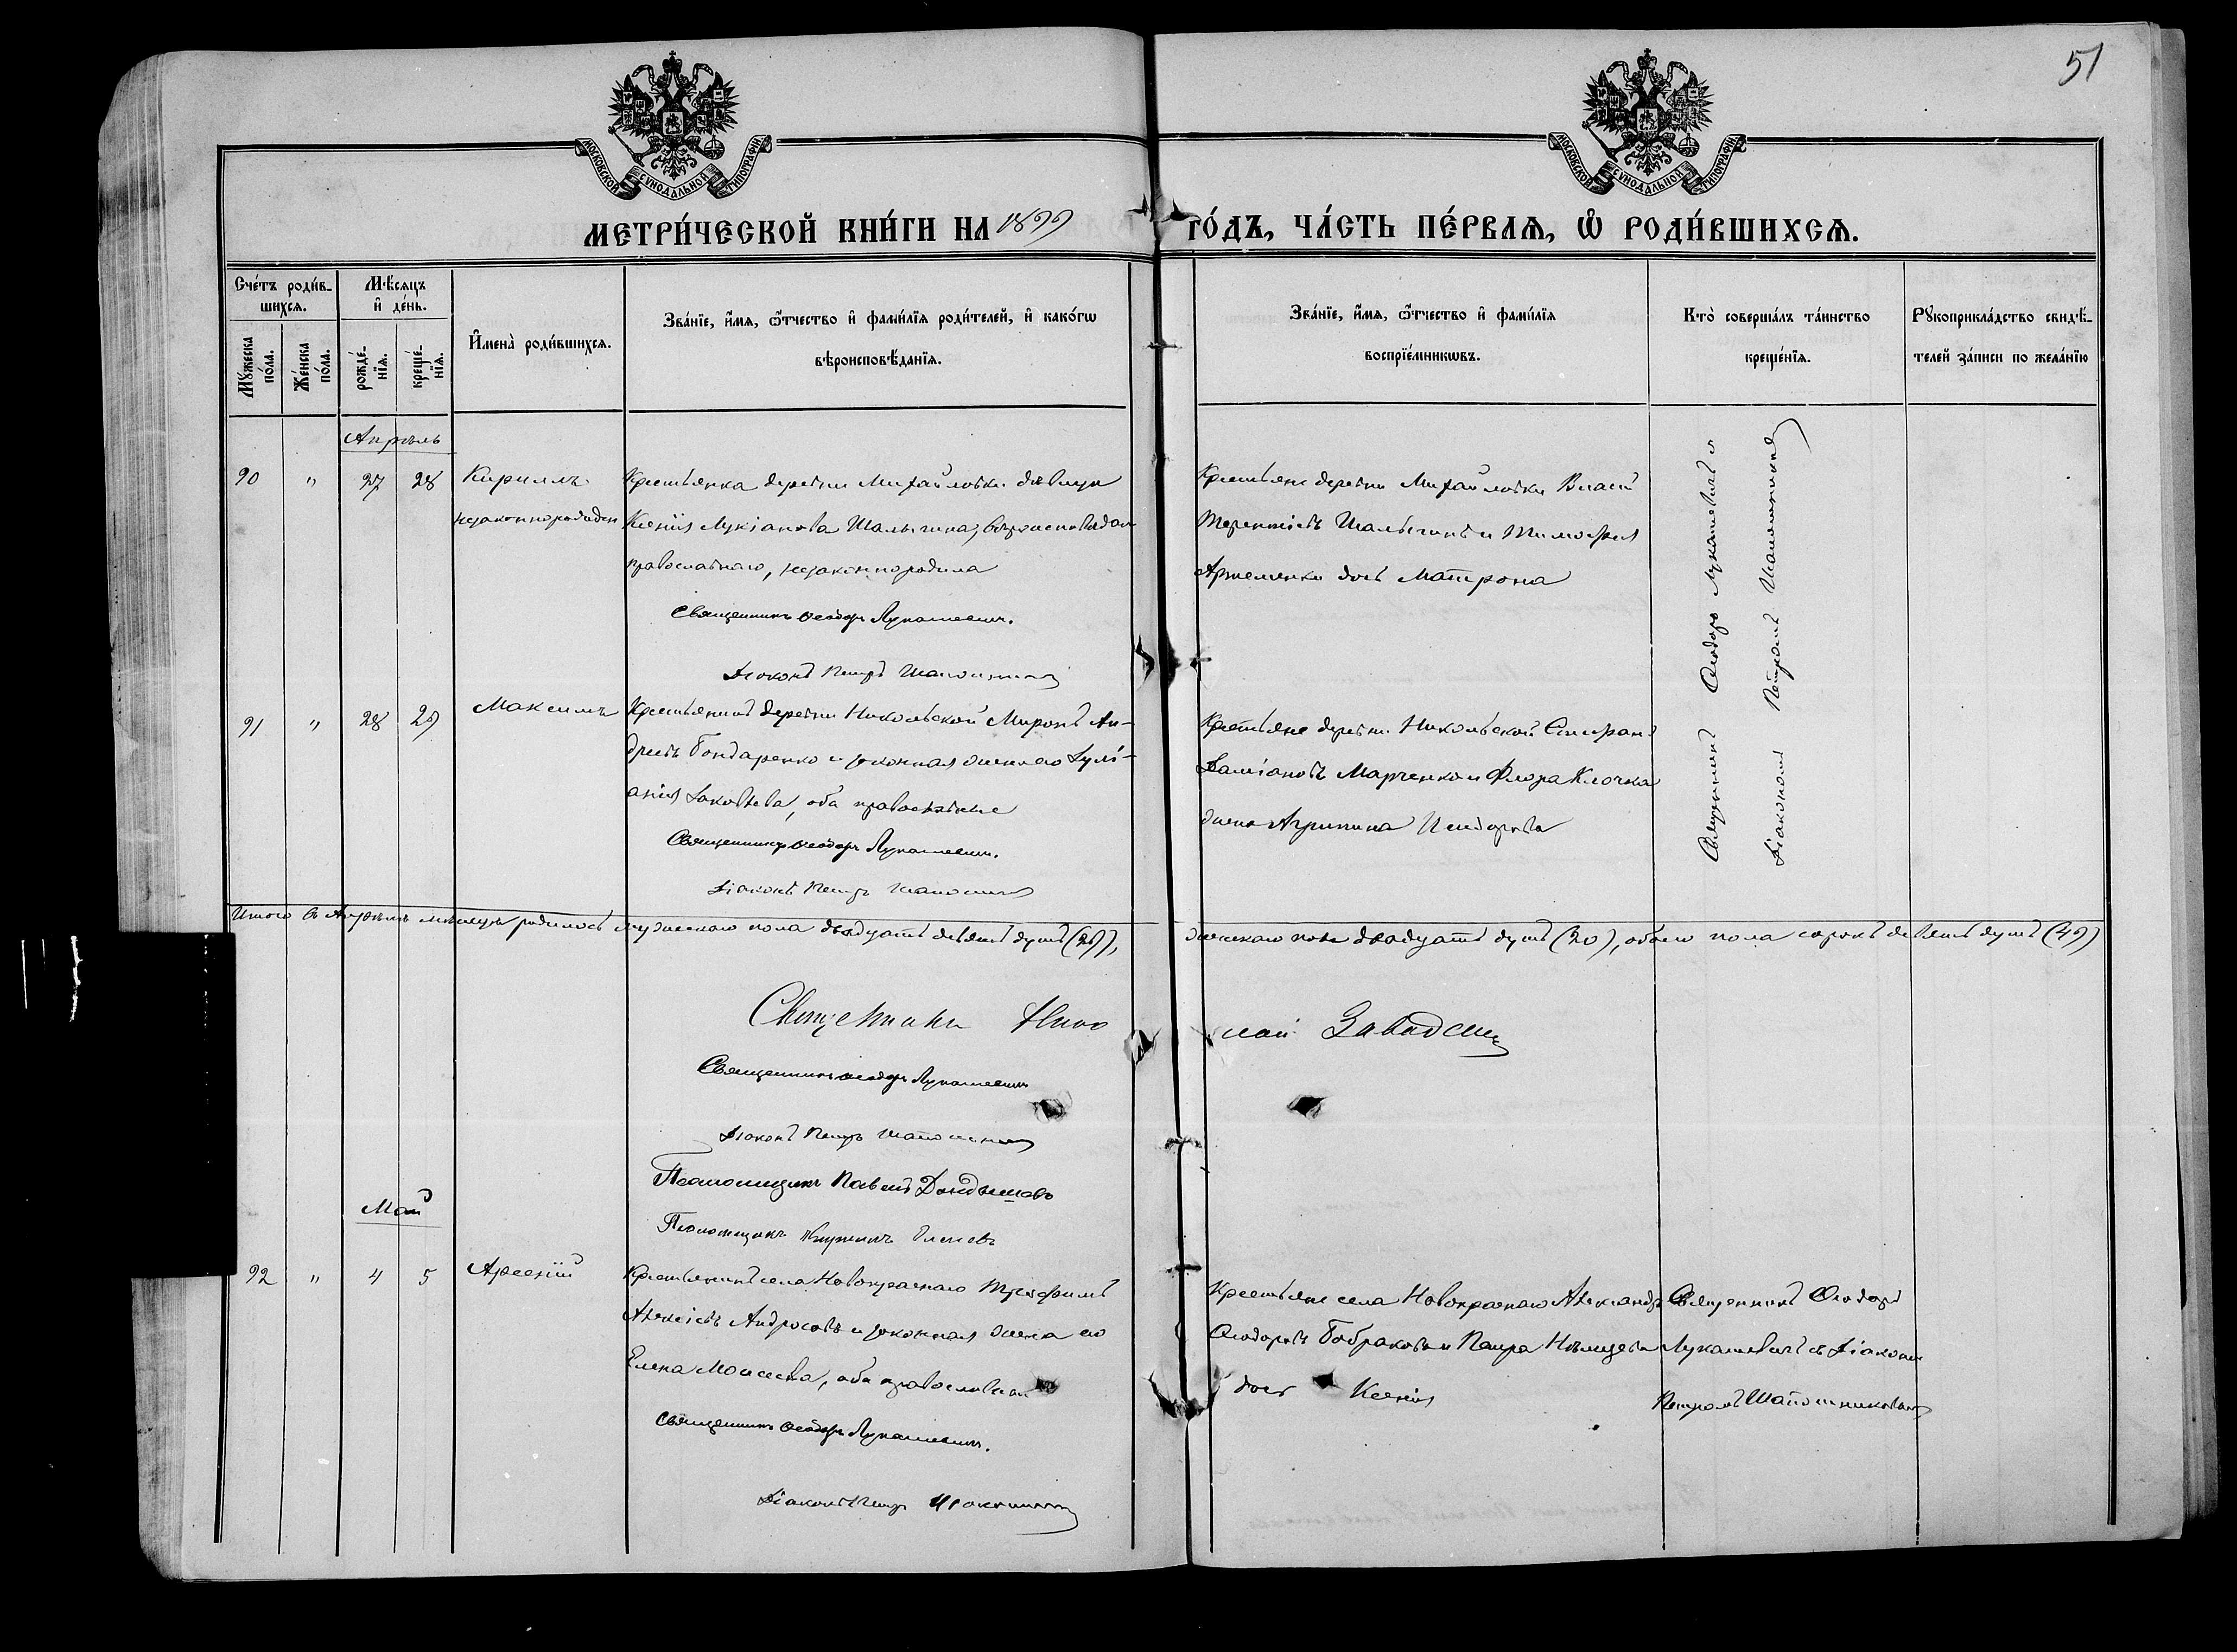 51
МОСКОВСКОЙ СУНОДАЛЬНОЙ ТИПОГРАФІИ.
МОСКОВСКОЙ СУНОДАЛЬНОЙ ТИПОГРАФІИ.
МЕТРИ́ЧЕСКОЙ КНИ́ГИ НА 1899 ГО́ДЪ, ЧА́СТЬ ПЕ́РВАѦ, Ѡ РОДИ́ВШИХСѦ.
Сче́тъ роди́в-
шихсѧ.
Мꙋ́жеска по́ла.
Же́нска по́ла.
Мѣ́сѧцъ
и҆ де́нь.
рожде́-
нїѧ.
креще́-
нїѧ.
И҆мена̀ роди́вшихсѧ.
Зва́нїе, и҆́мѧ, ѻ҆́тчество и҆ фами́лїѧ роди́телей, и҆ како́гѡ
вѣроисповѣ́данїѧ.
Зва́нїе, и҆́мѧ, ѻ҆́тчество и҆ фами́лїѧ
воспрїе́мникѡвъ.
Кто̀ соверша́лъ та́инство
креще́нїѧ.
Рꙋкоприкла́дство свидѣ́-
телей за́писи по жела́нїю
Апрѣль
90 " 27 28 Кириллъ
незаконнорожден
Крестьянка деревни Михайловки дѣвица
Ксенія Лукіанова Шалыгина, вѣроисповѣдан
православнаго, незаконнородила
Священникъ Ѳеодоръ Лукашевичъ.
Діаконъ Петръ Шапошников
Крестьяне деревни Михайловки Власій
Терентіевъ Шалыгинъ и Тимофея
Артеменки дочь Матрона
Священникъ Ѳеодоръ Лукашевичъ и
Діакономъ Петромъ Шапошниковъ
91 " 28 29 Максимъ
Крестьянинъ деревни Никольской Миронъ Ан-
дреевъ Бондаренко и законная жена его Іулі-
анія Іаковлева, оба православные
Священникъ Ѳеодоръ Лукашевичъ.
Діаконъ Петръ Шапошников
Крестьяне деревни Никольской
Даміановъ Марченко и Флора Клочка
жена Агрипина Исидорова
Итого въ Апрѣлѣ мѣсяцѣ родилось мужескаго пола двадцать девять душъ (29), женскаго пола двадцать душъ (20), обоего пола сорокъ девять душъ (49)
Священникъ Николай Завадскій
Священникъ Ѳеодоръ Лукашевичъ
Діаконъ Петръ Шапошников
Псаломщикъ Павелъ
Псаломщикъ
Май
92 " 4 5 Арсеній
Крестьянинъ села Новокраснаго Трофимъ
Алексіевъ Андросовъ и законная жена его
Елена Моисеева, оба православные
Священникъ Ѳеодоръ Лукашевичъ.
Діаконъ Петръ Шапошников
Крестьяне села Новокраснаго Александръ
Ѳеодоровъ Бобраковъ и Петра Нѣмцева
дочь Ксенія
Священникъ Ѳеодоръ
Лукашевичъ съ Діакономъ
Петромъ Шапошниковымъ